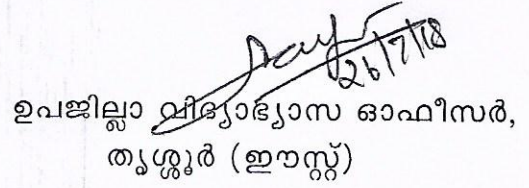 26/7/18
ഉപജില്ലാ വിദ്യാഭ്യാസ ഓഫീസർ,
തൃശ്ശൂർ (ഈസ്റ്റ്)